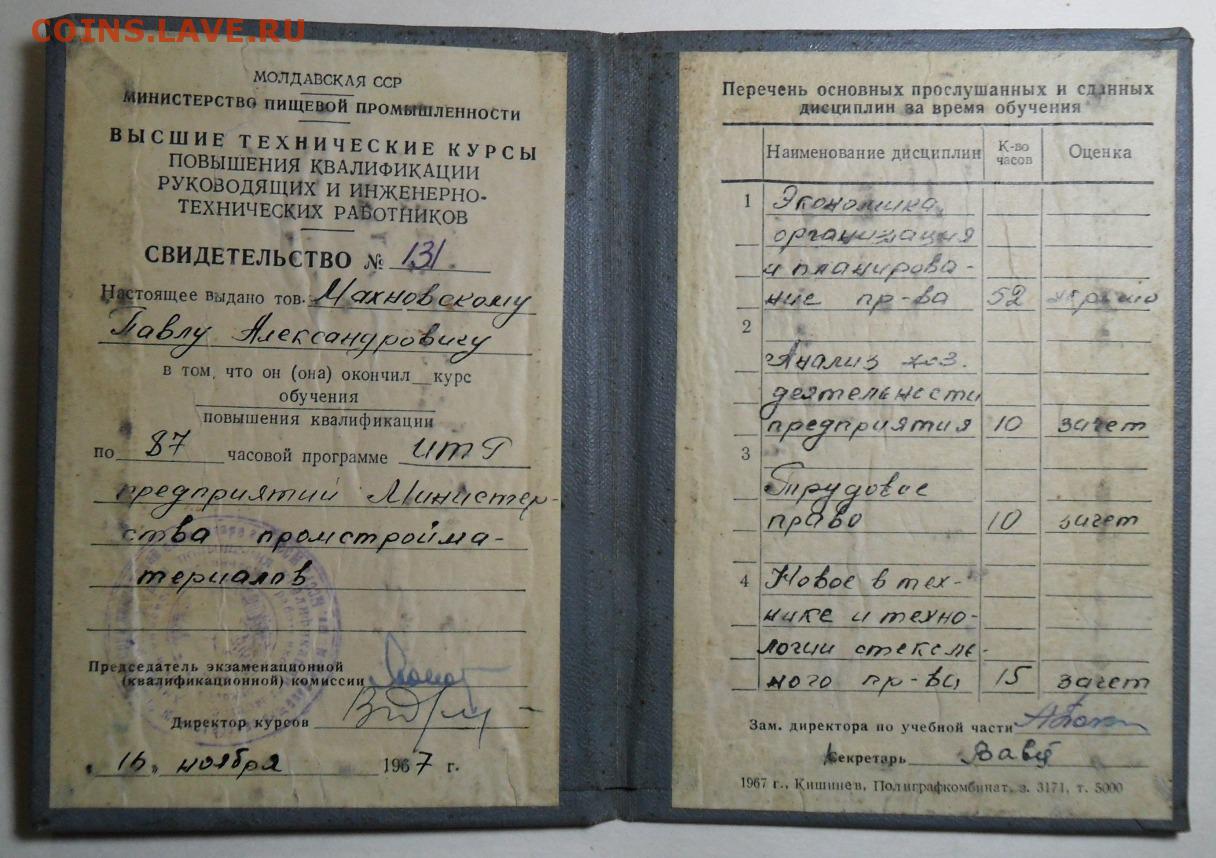 COINS.LAVE.RU
МОЛДАВСКАЯ ССР
МИНИСТЕРСТВО ПИЩЕВОЙ ПРОМЫШЛЕННОСТИ
ВЫСШИЕ ТЕХНИЧЕСКИЕ КУРСЫ
ПОВЫШЕНИЯ КВАЛИФИКАЦИИ
РУКОВОДЯЩИХ И ИНЖЕНЕРНО-
ТЕХНИЧЕСКИХ РАБОТНИКОВ
СВИДЕТЕЛЬСТВО № 131
Настоящее выдано тов. Махновскому
Павлу Александровичу
в том, что он (она) окончил курс
обучения
повышения квалификации
по 87 часовой программе ИТР
предприятий Министер-
ства промстройма-
териалов
Председатель экзаменационной
(квалификационной) комиссии
Директор курсов
„16„ ноября 1967 г.
Перечень основных прослушанных и сданных
дисциплин за время обучения
Наименование дисциплин К-во часов Оценка
1 Экономика
организация
и планирова-
ние пр-ва 52 хорошо
2
Анализ хоз.
деятельности
предприятия 10 зачет
3
Трудовое
право 10 зачет
4 Новое в тех-
нике и техно-
логии стеколь-
ного пр-ва 15 зачет
Зам. директора по учебной части
Секретарь
1967 г., Кишинев, Полиграфкомбинат, з. 3171, т. 5000